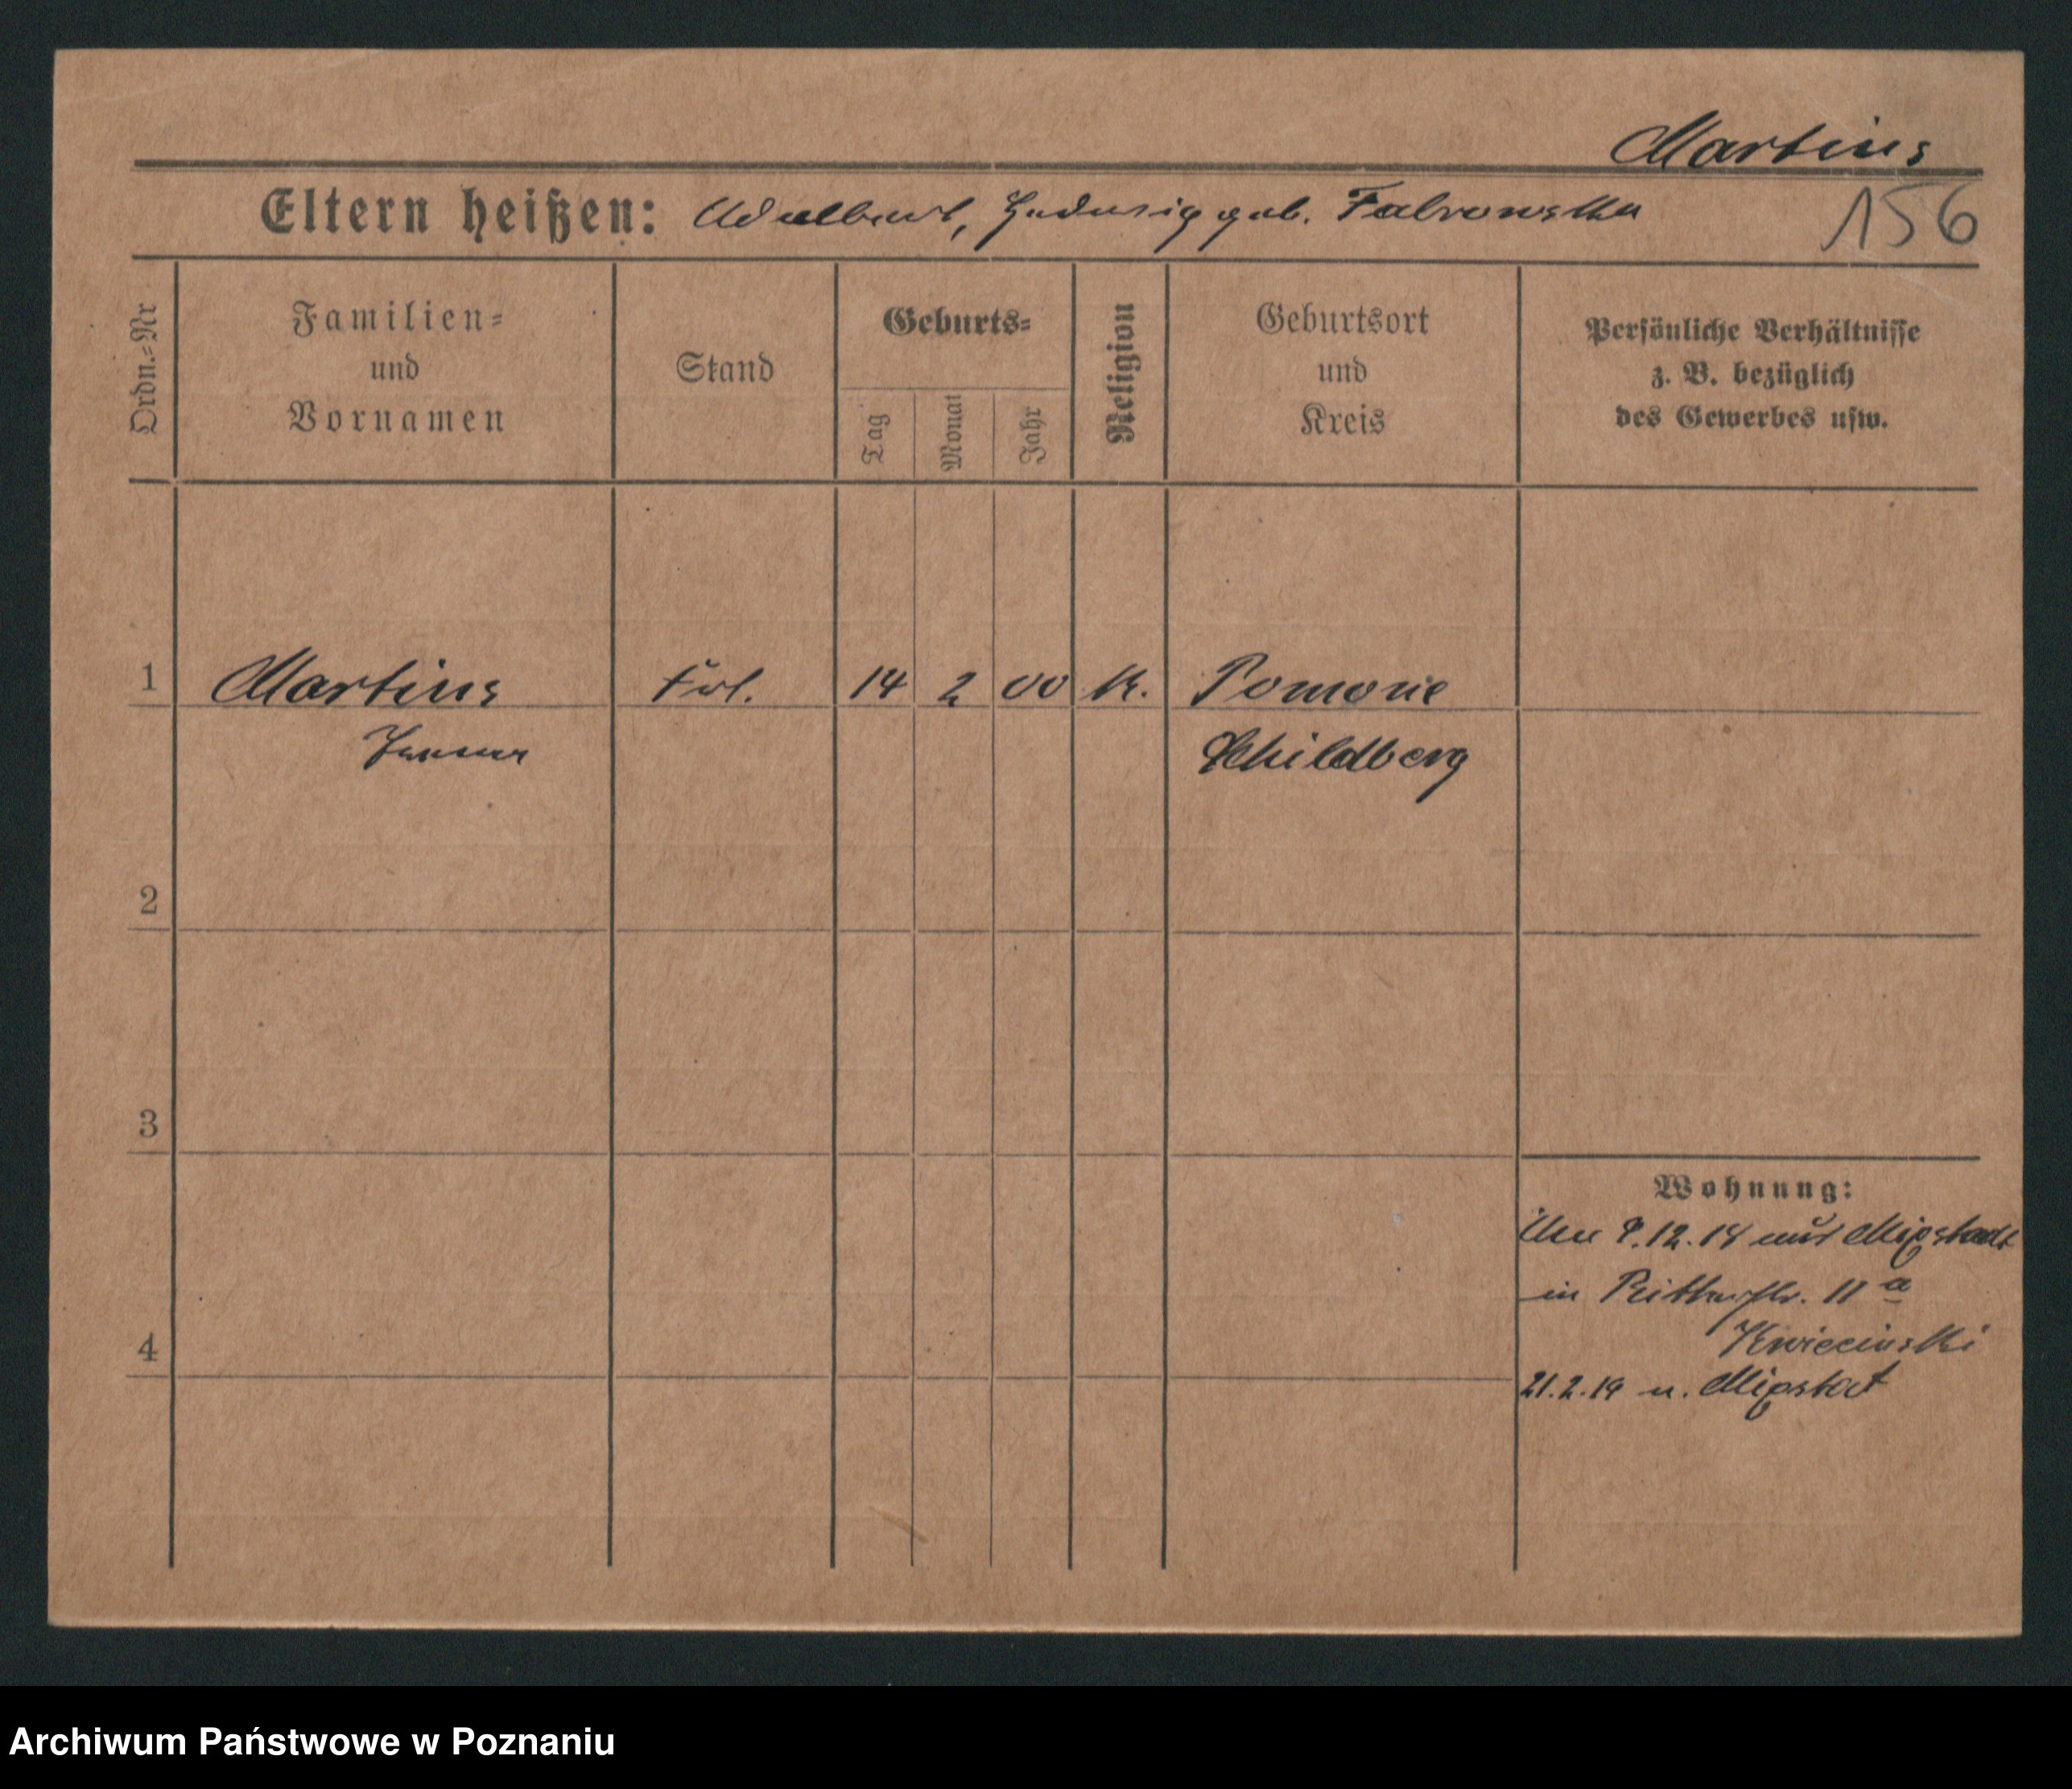 Martins
Eltern heißen: Adalbert, Hedwig geb. Fabrowska
156
Ordn.=Nr
Familien=
und
Vornamen
Stand
Geburts=
Tag
Monat
Jahr
Religion
Geburtsort
und
Kreis
Persönliche Verhältnisse
z. B. bezüglich
des Gewerbes usw.
1 Martins Frl. 14 2 00 K. Pomorie
Schildberg
2
3
Wohnung:
12.18 aus Mixstadt
in Ritterstr. 11 a
4
Kwiecinski
21.2.19 n. Mixstat
Archiwum Państwowe w Poznaniu